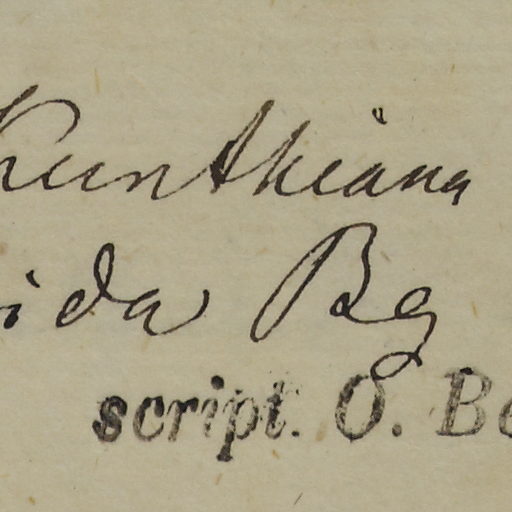 Kunthiana
ida Bg
script. O. Be